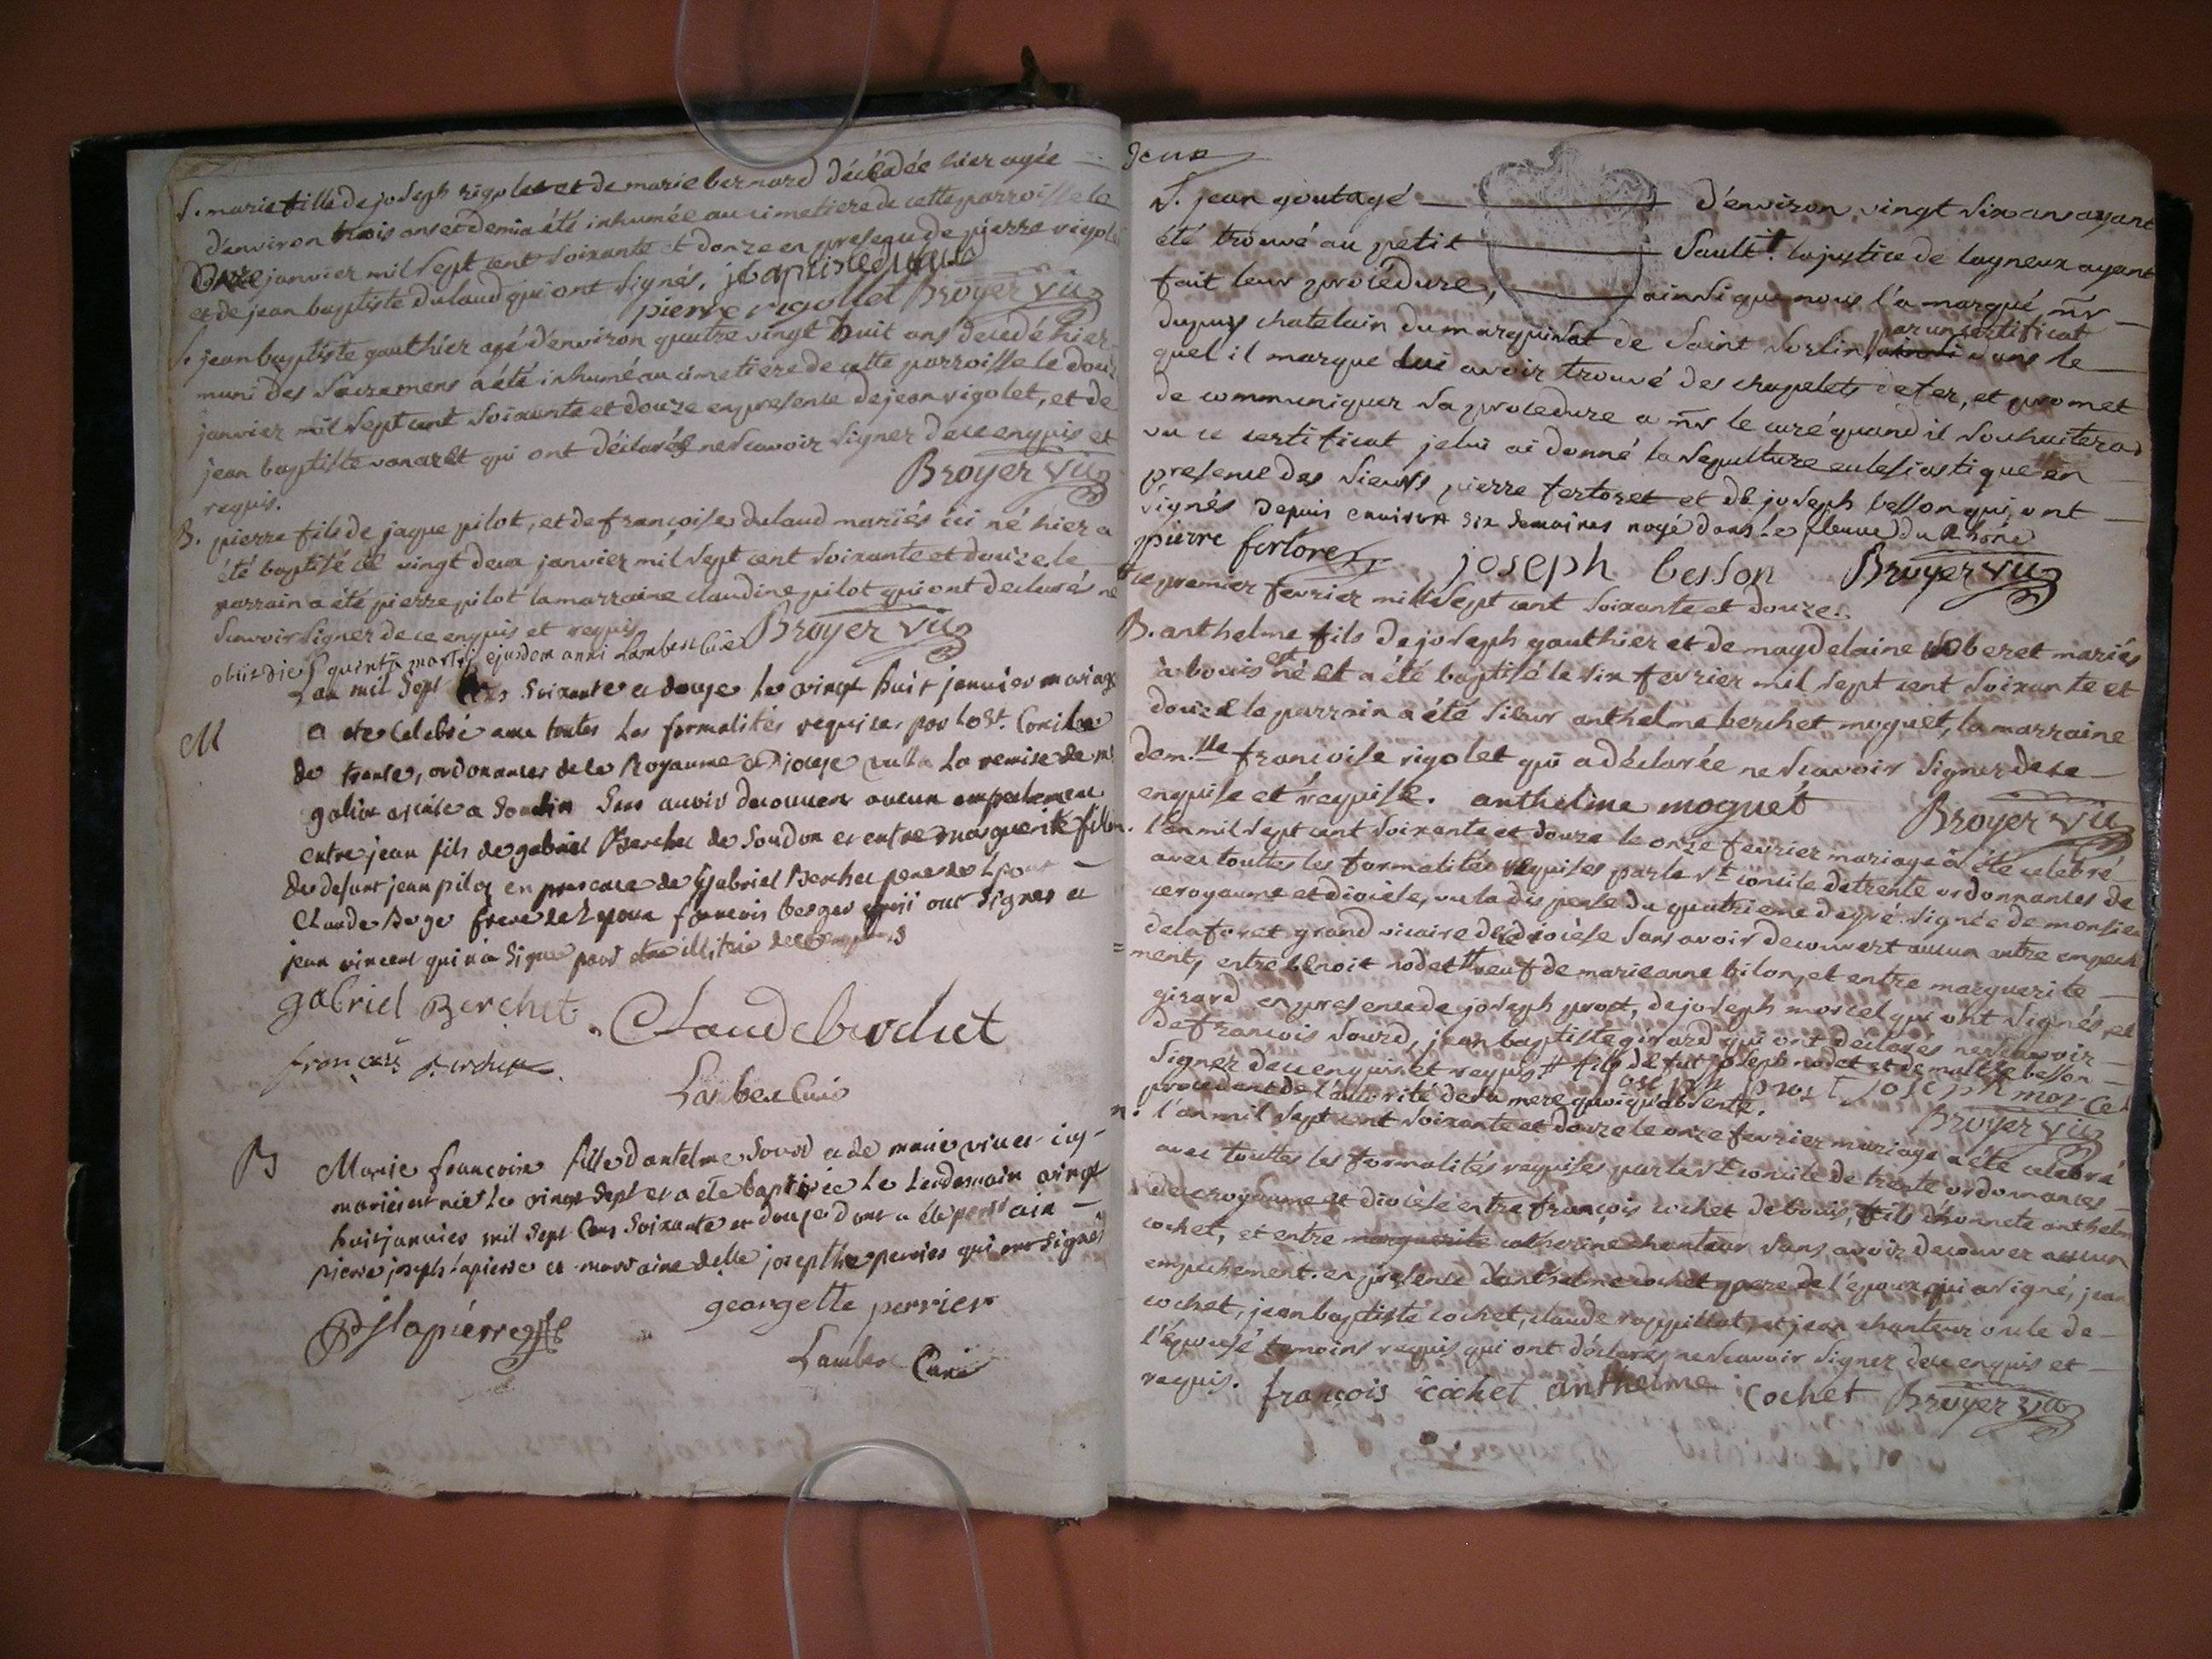 S. marie fille de joseph rigolet et de marie bernard décédée hier agée
d'environ trois ans et demi a été inhumée au cimetiere de cette parroisse le
onze janvier mil sept cent soixante et douze en presence de pierre rigolet
et de jean baptiste dulaud qui ont signés. jbaptiste dulaud
pierre rigollet Broyer vic
S. jean baptiste gauthier agé d'environ quatre vingt huit ans decedé hier
muni des sacremens a été inhumé au cimetiere de cette parroisse le douze
janvier mil sept cent soixante et douze en presence de jean rigolet, et de
jean baptiste vanaret qui ont déclarés ne scavoir signer de ce enquis et
requis. Broyer vic
B. pierre fils de jaque pilot, et de françoise dulaud mariés ici né hier a
été baptisé le vingt deux janvier mil sept cent soixante et douze le
parrain a été pierre pilot la marraine claudine pilot qui ont declarés ne
scavoir signer de ce enquis et requis Broyer vic
obiit die quinta martii ejusdem anni Lambert Curé
M Lan mil sept cens soixante et douze Le vingt huit janvier mariage
a ete celebré avec toutes les formalités requises par le St. Concile
de trente, ordonances de ce Royaume et dioceze vu la remise de mr
galien a Soudon sans avoir decouvert aucun empechement
entre jean fils de gabriel Berchet de Soudon et entre marguerite fille
du defunt jean pilot en presence de Gabriel Berchet pere de Lepoux
Claude frere de Lepoux francois qui ont signés et
jean vincent qui n'a signé pour etre illitéré de ce enquis
gabriel Berchet Claude berchet
françois berchet
Lambert Curé
B Marie francoise fille d'antelme Sourd et de marie
mariés est née Le vingt sept et a ete baptisée Le Lendemain vingt
huit janvier mil sept cens soixante et douze dont a ete parrain
pierre joseph lapierre et marraine delle josepthe perrier qui ont signés
PJ lapiérre georgette perrier
Lambert Curé
deux
S. jean goutagé d'environ vingt six ans ayant
été trouvé au petit Sault. la justice de lagneux ayant
fait leur procédure, ainsi que nous l'a marqué mr
dupuys chatelain du marquisat de Saint Sorlin par un certificat dans le
quel il marque lui avoir trouvé des chapelets de fer, et promet
de communiquer sa procedure a mr le curé quand il souhaitera
vu ce certificat je lui ai donné la sepulture eclesiastique en
presence des sieurs pierre fertoret et de joseph besson qui ont
signés depuis environ six semaines noyé dans le fleuve du Rhône
pierre fertoret joseph besson Broyer vic
le premier fevrier mil sept cent soixante et douze.
B. anthelme fils de joseph gauthier et de magdelaine soberet mariés
à bouis est né et a été baptisé le six fevrier mil sept cent soixante et
douze le parrain a été sieur anthelme berchet moguet, la marraine
dem.lle francoise rigolet qui a déclarée ne scavoir signer de ce
enquise et requise. anthelme moguet Broyer vic
m. l'an mil sept cent soixante et douze le onze fevrier mariage a été celebré
avec touttes les formalités requises par le st concile de trente ordonnances de
ce royaume et diocèse, vu la dispense du quatrieme degré signée de monsieur
delaforet grand vicaire de ce diocèse sans avoir decouvert aucun autre empeche
ment, entre benoit nodet # veuf de marieanne bilon, et entre marguerite
girard en presence de joseph prost, de joseph morcel qui ont signés, et
de francois sourd, jean baptiste girard qui ont déclarés ne scavoir
signer de ce enquis et requis # fils de fut joseph nodet et de besson
procedant de l'autorité de sa mere quoiqu'absente. joseph prost joseph morcel
Broyer vic
m. l'an mil sept cent soixante et douze le onze fevrier mariage a été celebré
avec touttes les formalités requises par le st concile de trente ordonnances
de ce royaume et diocèse entre françois cochet de bouis, fils d'honnete anthelme
cochet, et entre marguerite catherine chanteur sans avoir decouver aucun
empechement. en presence d'anthelme cochet pere de l'epoux qui a signé, jean
cochet, jean baptiste cochet, claude rappillat, et jean chanteur oncle de
l'épouse temoins requis qui ont déclarés ne scavoir signer de ce enquis et
requis. françois cochet anthelme cochet Broyer vic